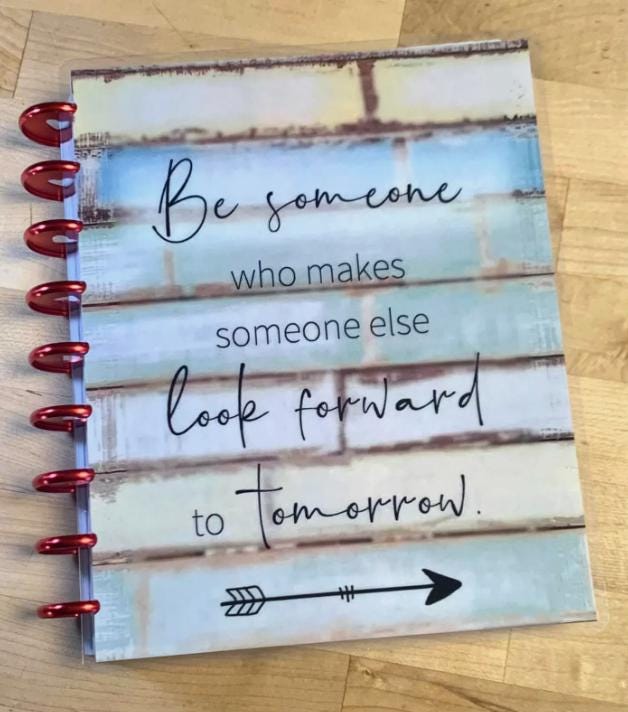 Be someone
who makes
someone else
look forward
to tomorrow.